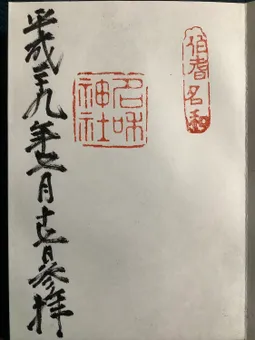 伯耆名和
名咊
神社
平成二十九年七月十七日参拝